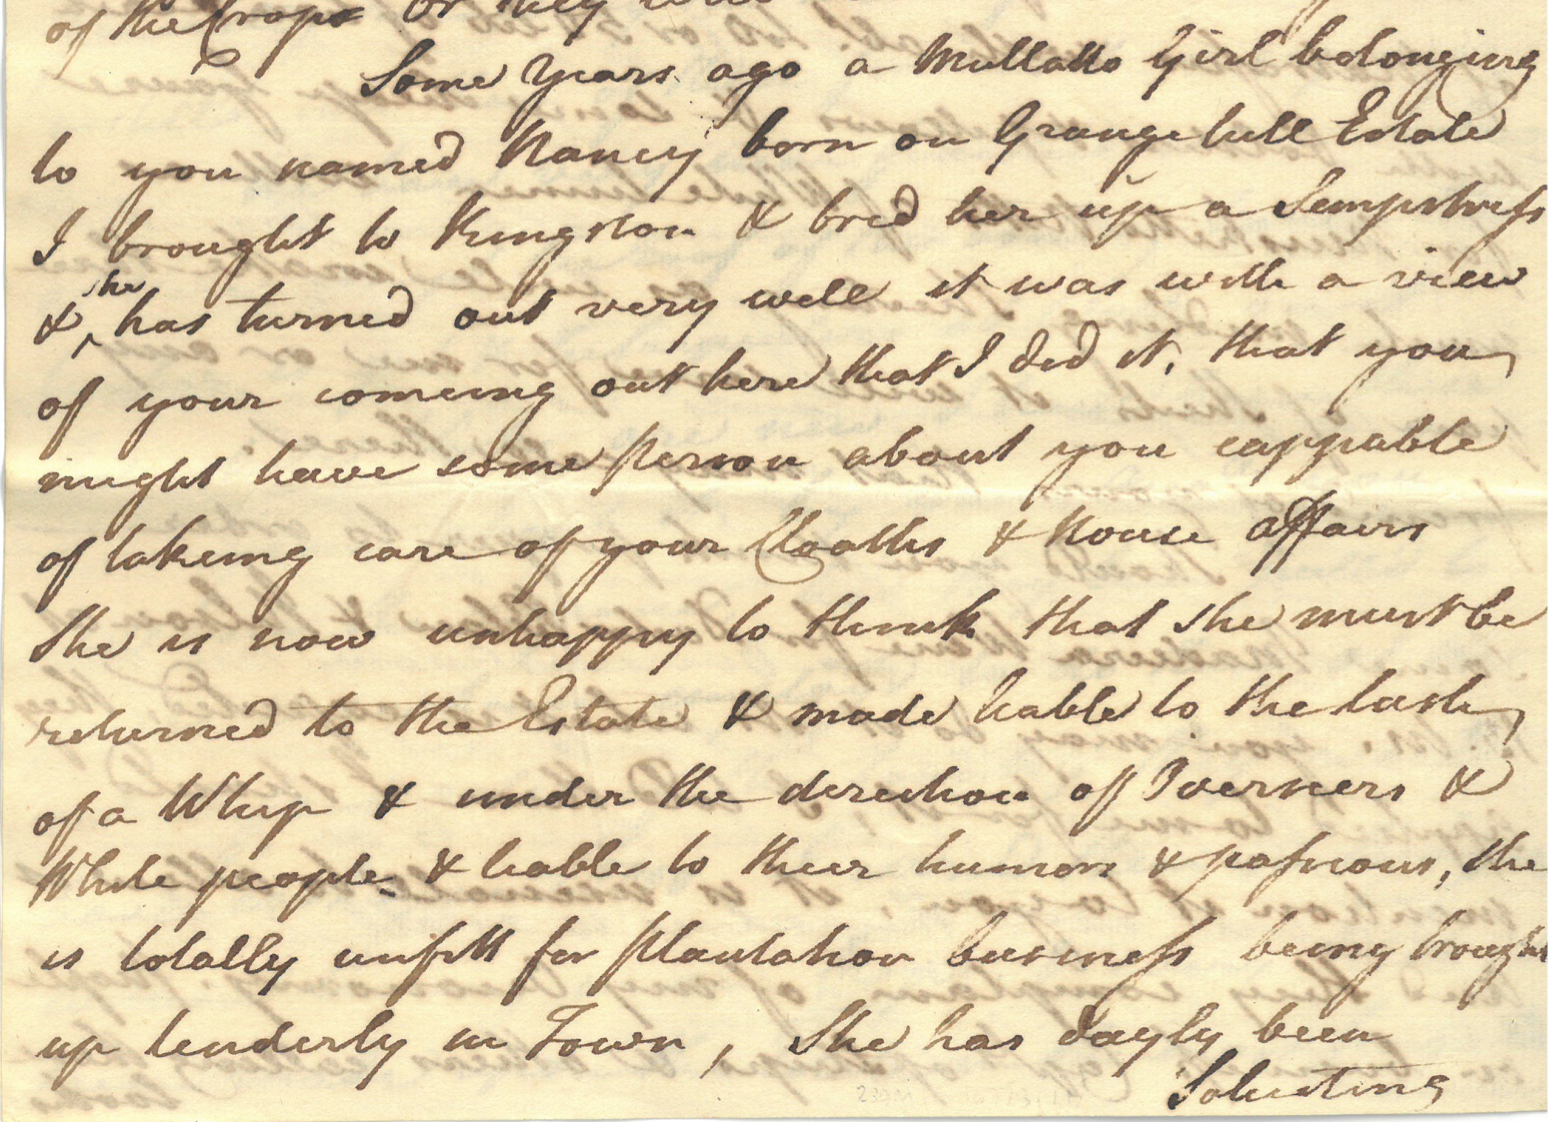 of the Crops or they
Some Years ago a Mullatto Girl belonging
to you named Nancy born on Grange hill Estate
I brought to Kingston & bred her up a Sempstress
& she has turned out very well it was with a view
of your comeing out here that I did it, that you
might have some person about you cappable
of takeing care of your Cloaths & House affairs
She is now unhappy to think that she must be
returned to the Estate & made liable to the lash
of a Whip & under the direction of Overseers &
White people & liable to their humors & passions, she
is totally unfitt for Plantation business being brought
up tenderly in Town, She has dayly been
Soliciting